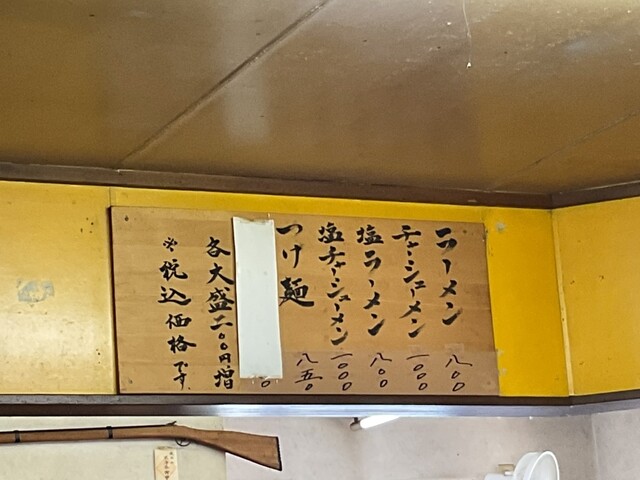 ラーメン 八〇〇
チャーシューメン 一〇〇〇
塩ラーメン 八〇〇
塩チャーシューメン 一〇〇〇
つけ麺 八五〇
〇
各大盛二〇〇円増
※税込価格です